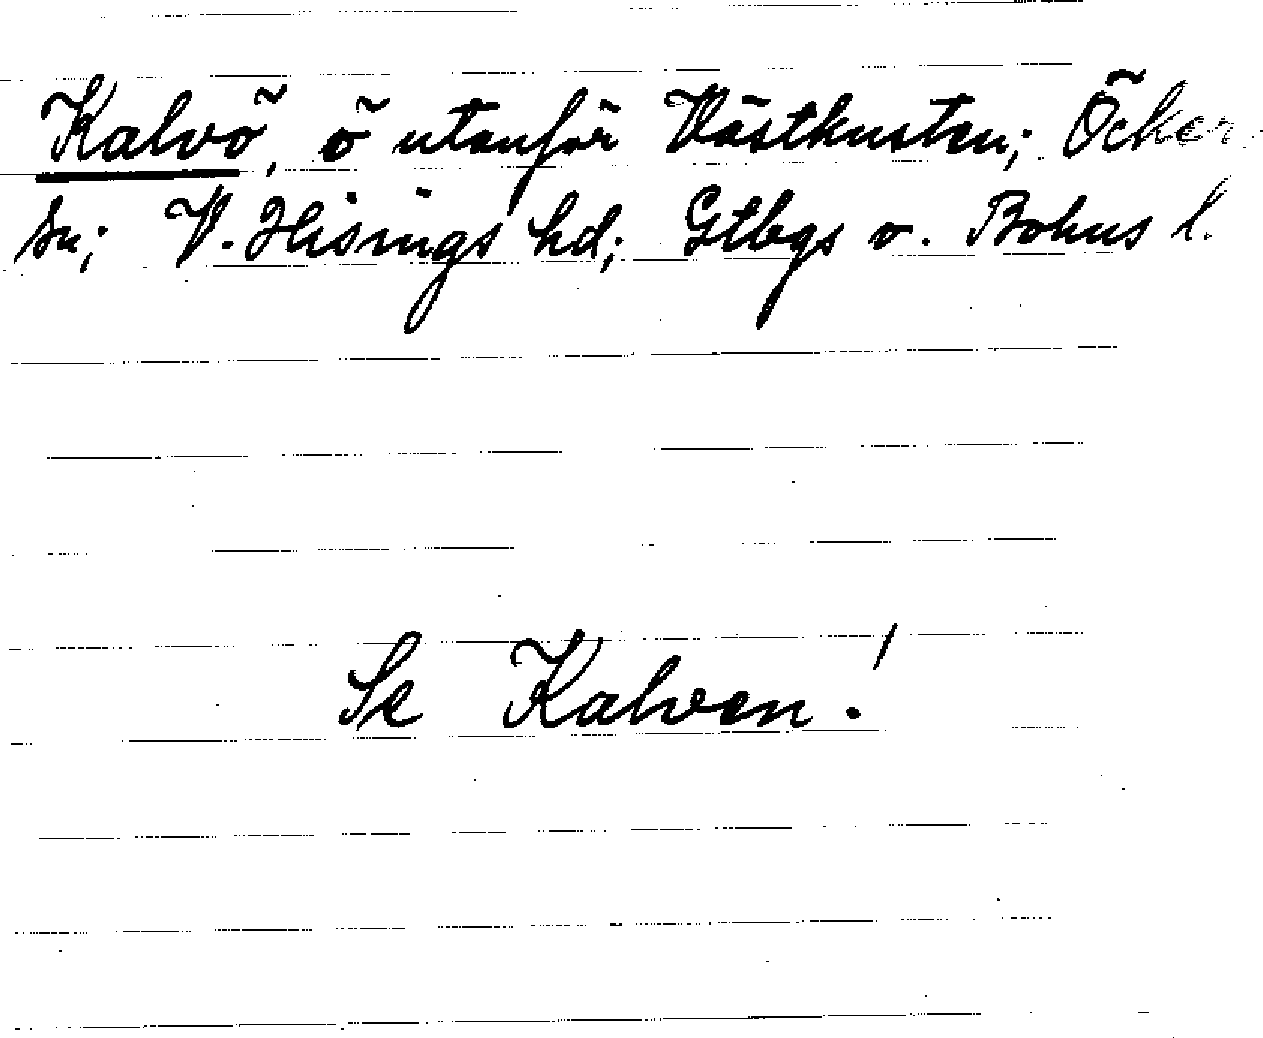 Kalvö, ö utanför Västkusten; Öckerö
sn; V. Hisings hd; Gtbgs o. Bohus l.
Se Kalven!